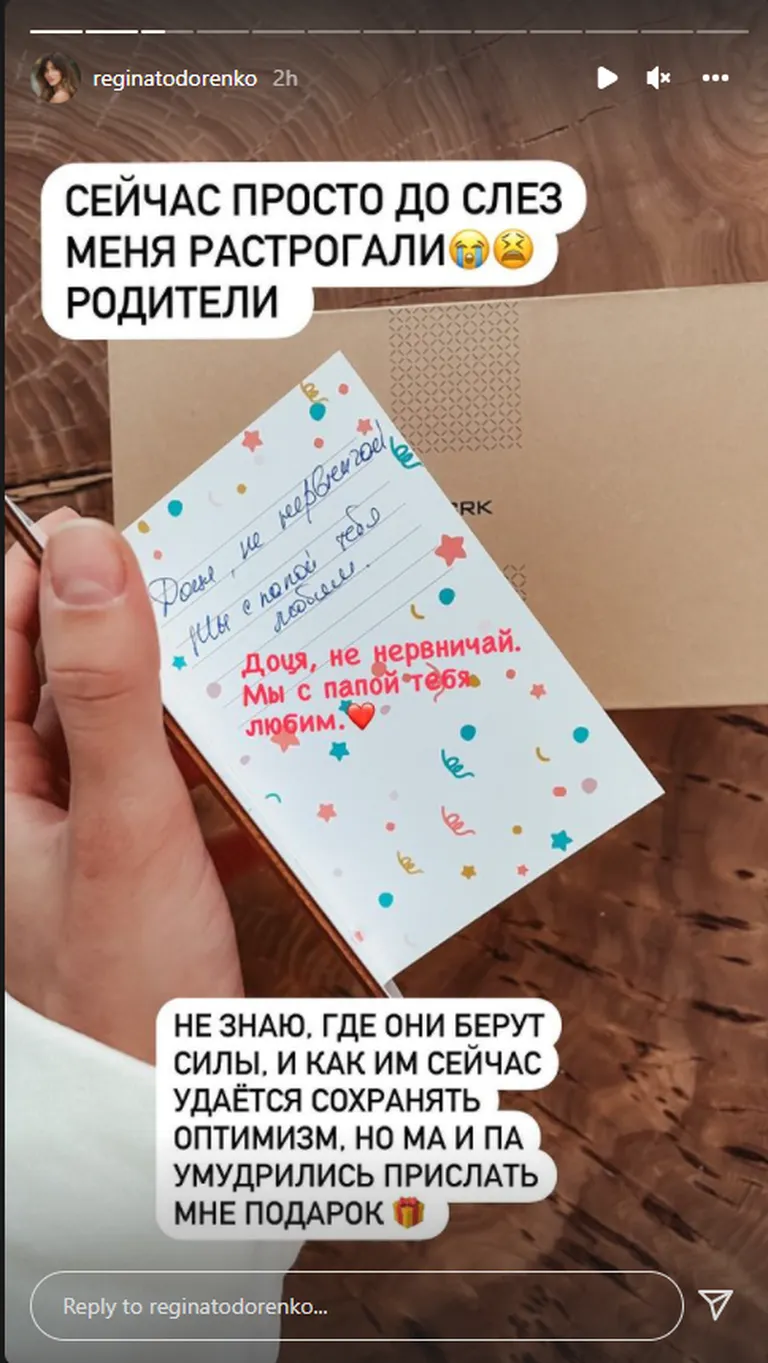 reginatodorenko 2h
СЕЙЧАС ПРОСТО ДО СЛЕЗ
МЕНЯ РАСТРОГАЛИ😭😫
РОДИТЕЛИ
RK
Доця, не нервничай
Мы с папой тебя
любим.
Доця, не нервничай.
Мы с папой тебя
любим.❤️
НЕ ЗНАЮ, ГДЕ ОНИ БЕРУТ
СИЛЫ, И КАК ИМ СЕЙЧАС
УДАЁТСЯ СОХРАНЯТЬ
ОПТИМИЗМ, НО МА И ПА
УМУДРИЛИСЬ ПРИСЛАТЬ
МНЕ ПОДАРОК 🎁
Reply to reginatodorenko...